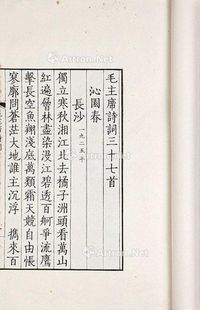 毛主席詩詞三十七首
沁園春
長沙 一九二五年
獨立寒秋湘江北去橘子洲頭看萬山
紅遍層林盡染漫江碧透百舸爭流鷹
擊長空魚翔淺底萬類霜天競自由悵
寥廓問蒼茫大地誰主沉浮 攜來百